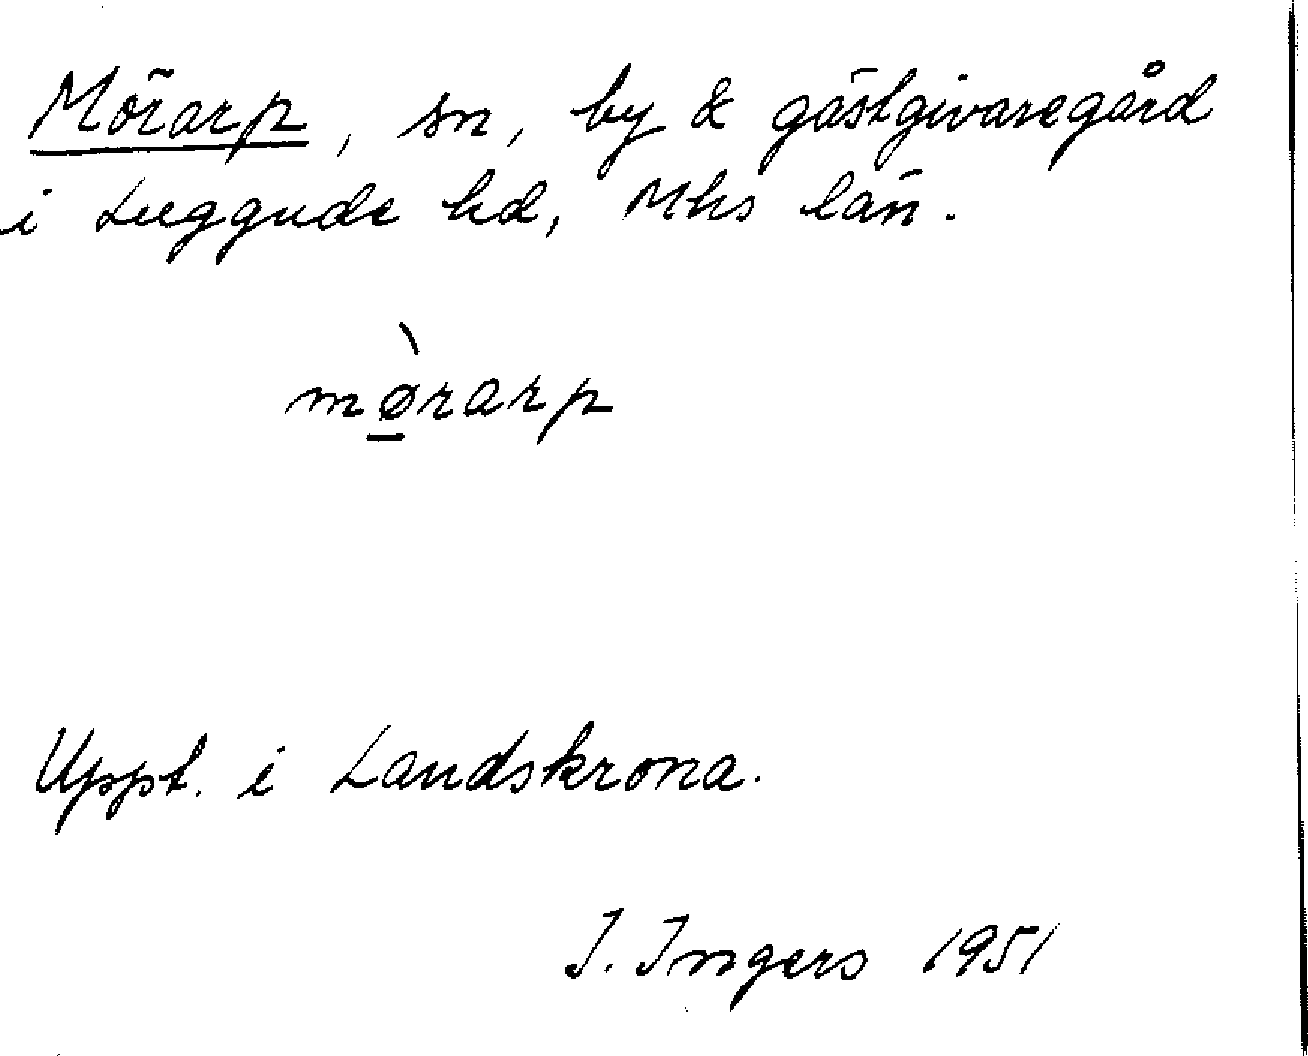 Mörarp, sn, by & gästgivaregård
i Luggude hd, Mhs län.
mø̱̀rarp
Uppt. i Landskrona.
I. Ingers 1951